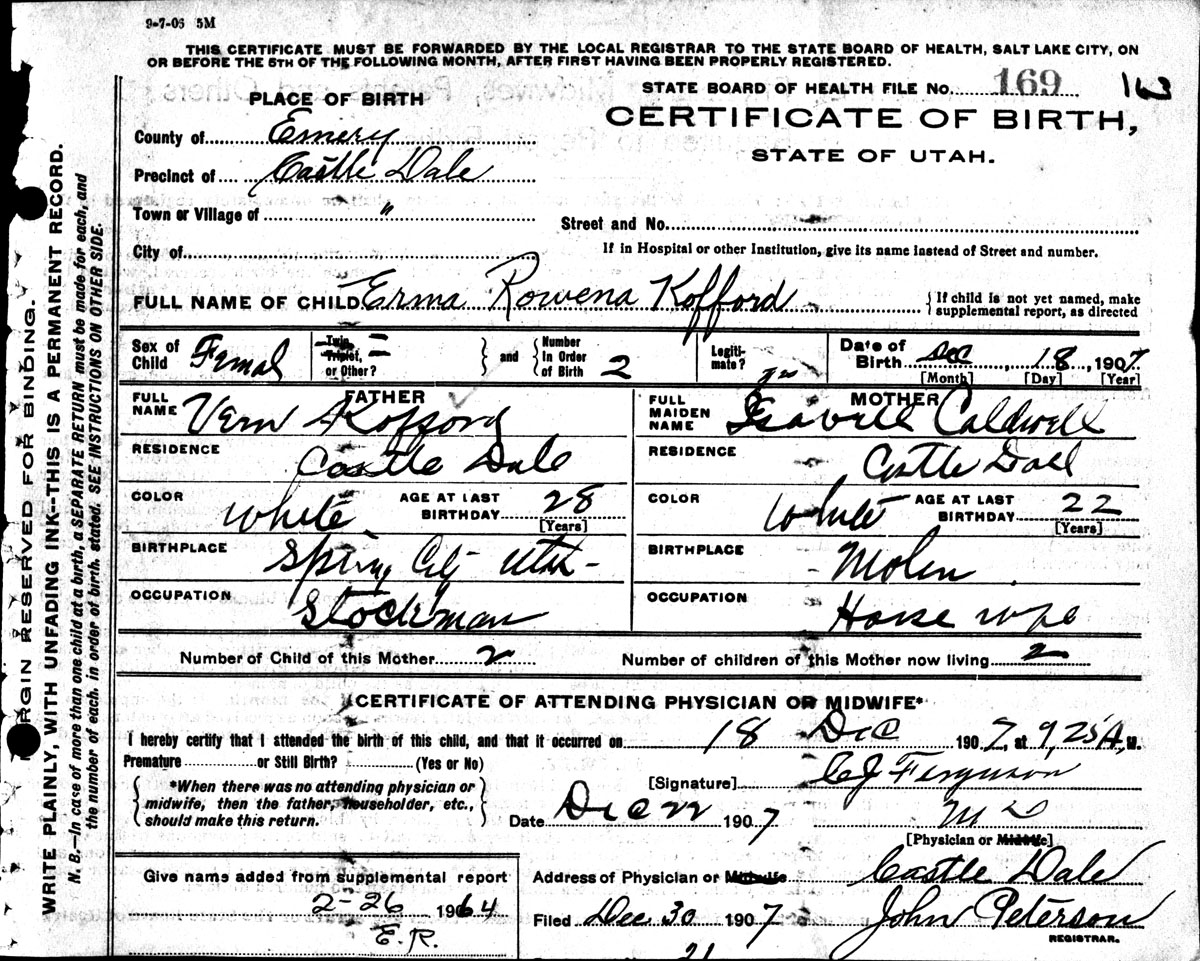 9-7-06 5M
THIS CERTIFICATE MUST BE FORWARDED BY THE LOCAL REGISTRAR TO THE STATE BOARD OF HEALTH, SALT LAKE CITY, ON
OR BEFORE THE 5TH OF THE FOLLOWING MONTH, AFTER FIRST HAVING BEEN PROPERLY REGISTERED.
STATE BOARD OF HEALTH FILE No. 169 163
PLACE OF BIRTH
CERTIFICATE OF BIRTH,
STATE OF UTAH.
County of Emery
Precinct of Castle Dale
Town or Village of "
Street and No.
City of
If in Hospital or other Institution, give its name instead of Street and number.
FULL NAME OF CHILD Erma Rowena Kofford
If child is not yet named, make
supplemental report, as directed
Sex of Child Femal
Twin, Triplet, or Other? =
and
Number In Order of Birth 2
Legitimate?
Date of Birth Dec, 18, 1907
[Month] [Day] [Year]
FATHER
FULL NAME Vern Kofford
RESIDENCE Castle Dale
COLOR White
AGE AT LAST BIRTHDAY 28
[Years]
BIRTHPLACE Spring City Utah-
OCCUPATION Stockman
MOTHER
FULL MAIDEN NAME Isabell Caldwell
RESIDENCE Castle Dale
COLOR White
AGE AT LAST BIRTHDAY 22
[Years]
BIRTHPLACE Molen
OCCUPATION House wife
Number of Child of this Mother 2
Number of children of this Mother now living 2
CERTIFICATE OF ATTENDING PHYSICIAN OR MIDWIFE*
I hereby certify that I attended the birth of this child, and that it occurred on 18 Dec 1907, at 9,25 A, M.
Premature or Still Birth? (Yes or No)
[Signature] C J Ferguson
M D
*When there was no attending physician or
midwife, then the father, householder, etc.,
should make this return.
Date Dec 22 1907
[Physician or Midwife]
Address of Physician or Midwife Castle Dale
Give name added from supplemental report
2-26 1964
E.R.
Filed Dec 30 1907 John Peterson
REGISTRAR.
21
MARGIN RESERVED FOR BINDING.
WRITE PLAINLY, WITH UNFADING INK--THIS IS A PERMANENT RECORD.
N. B.—In case of more than one child at a birth, a SEPARATE RETURN must be made for each, and
the number of each, in order of birth, stated. SEE INSTRUCTIONS ON OTHER SIDE.